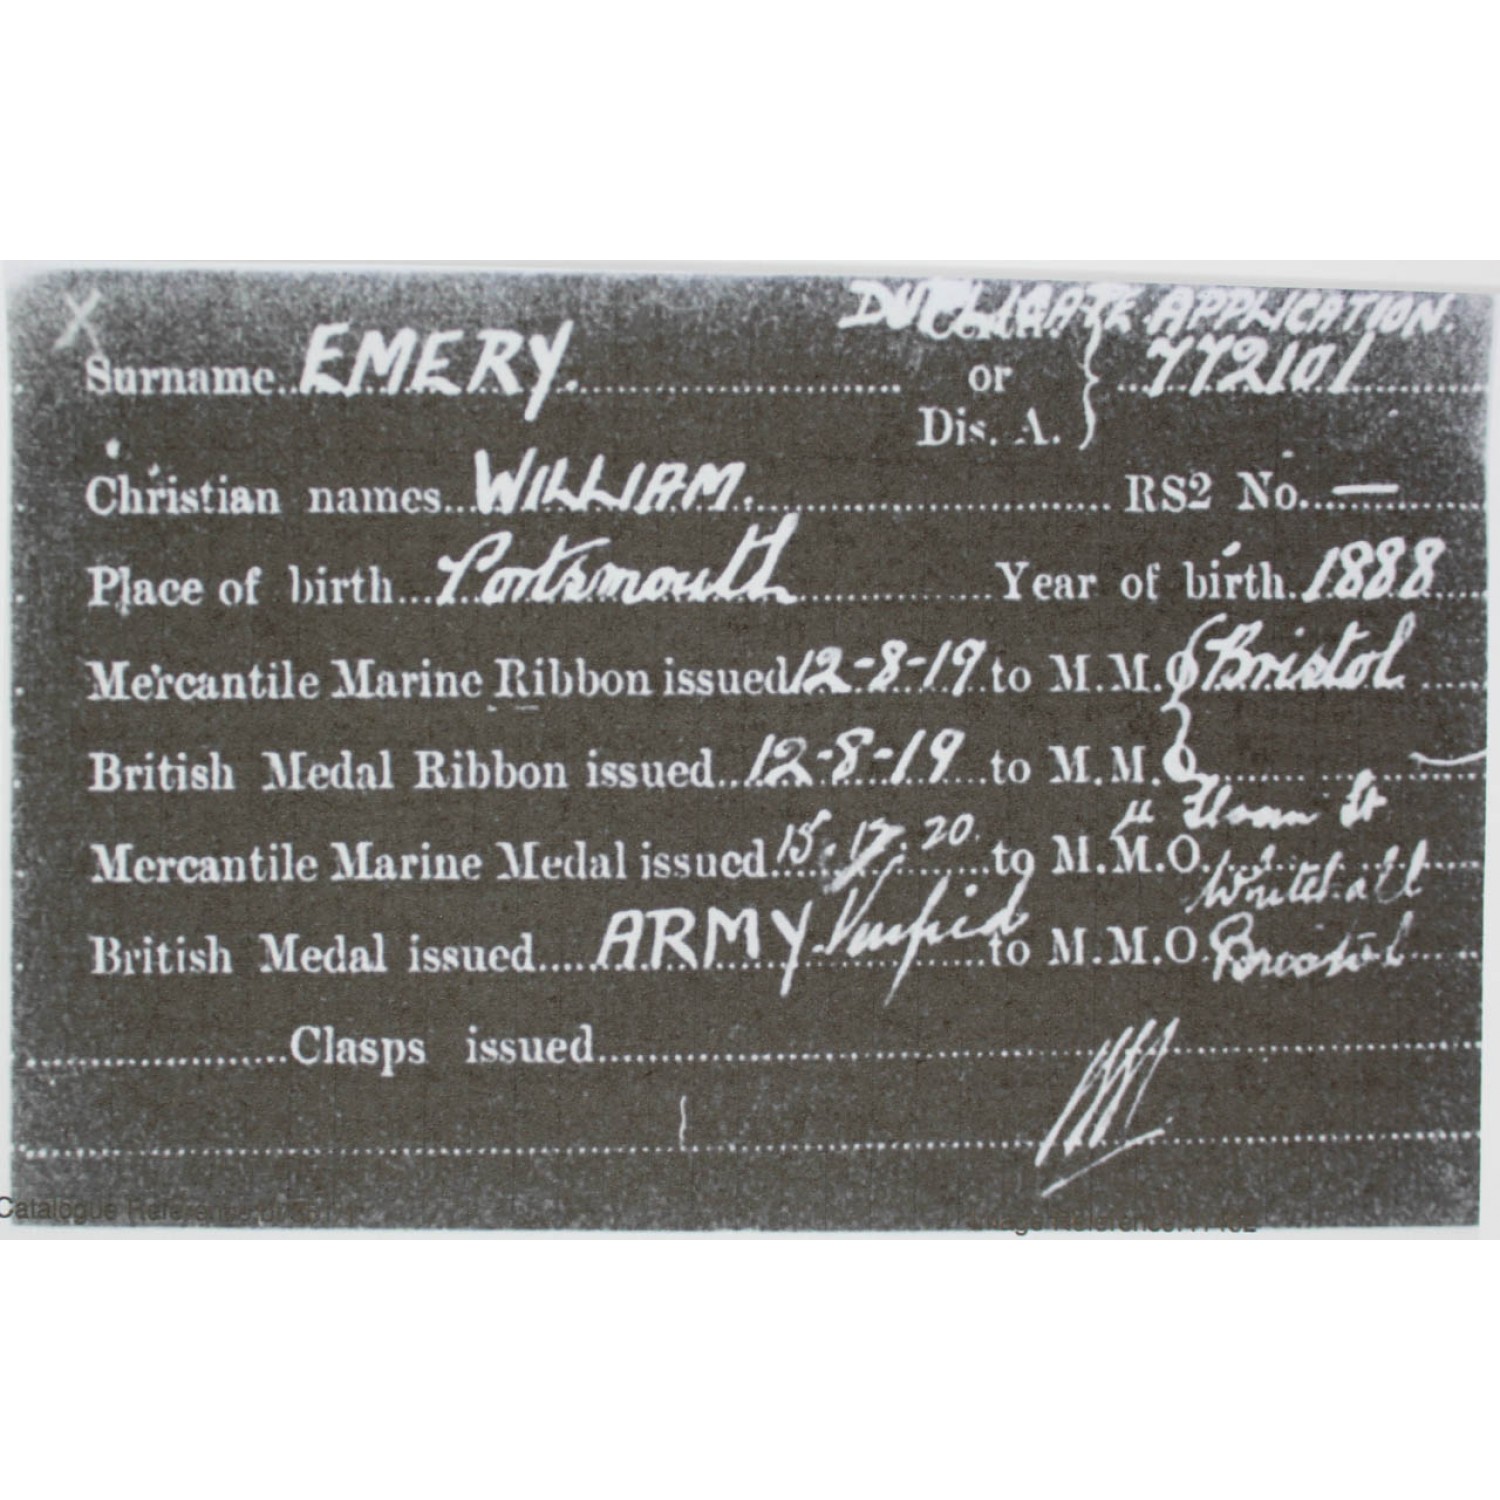 DUPLICATE APPLICATION.
Surname EMERY. or Dis. A. } 772101
Christian names WILLIAM. RS2 No. —
Place of birth Portsmouth Year of birth 1888
Mercantile Marine Ribbon issued 12-8-19 to M.M.O Bristol
British Medal Ribbon issued 12-8-19 to M.M.O
" St
Mercantile Marine Medal issued 15.12.20. to M.M.O.
Whitehall
British Medal issued ARMY Verified to M.M.O Bristol
Clasps issued
Catalogue Reference
Image Reference